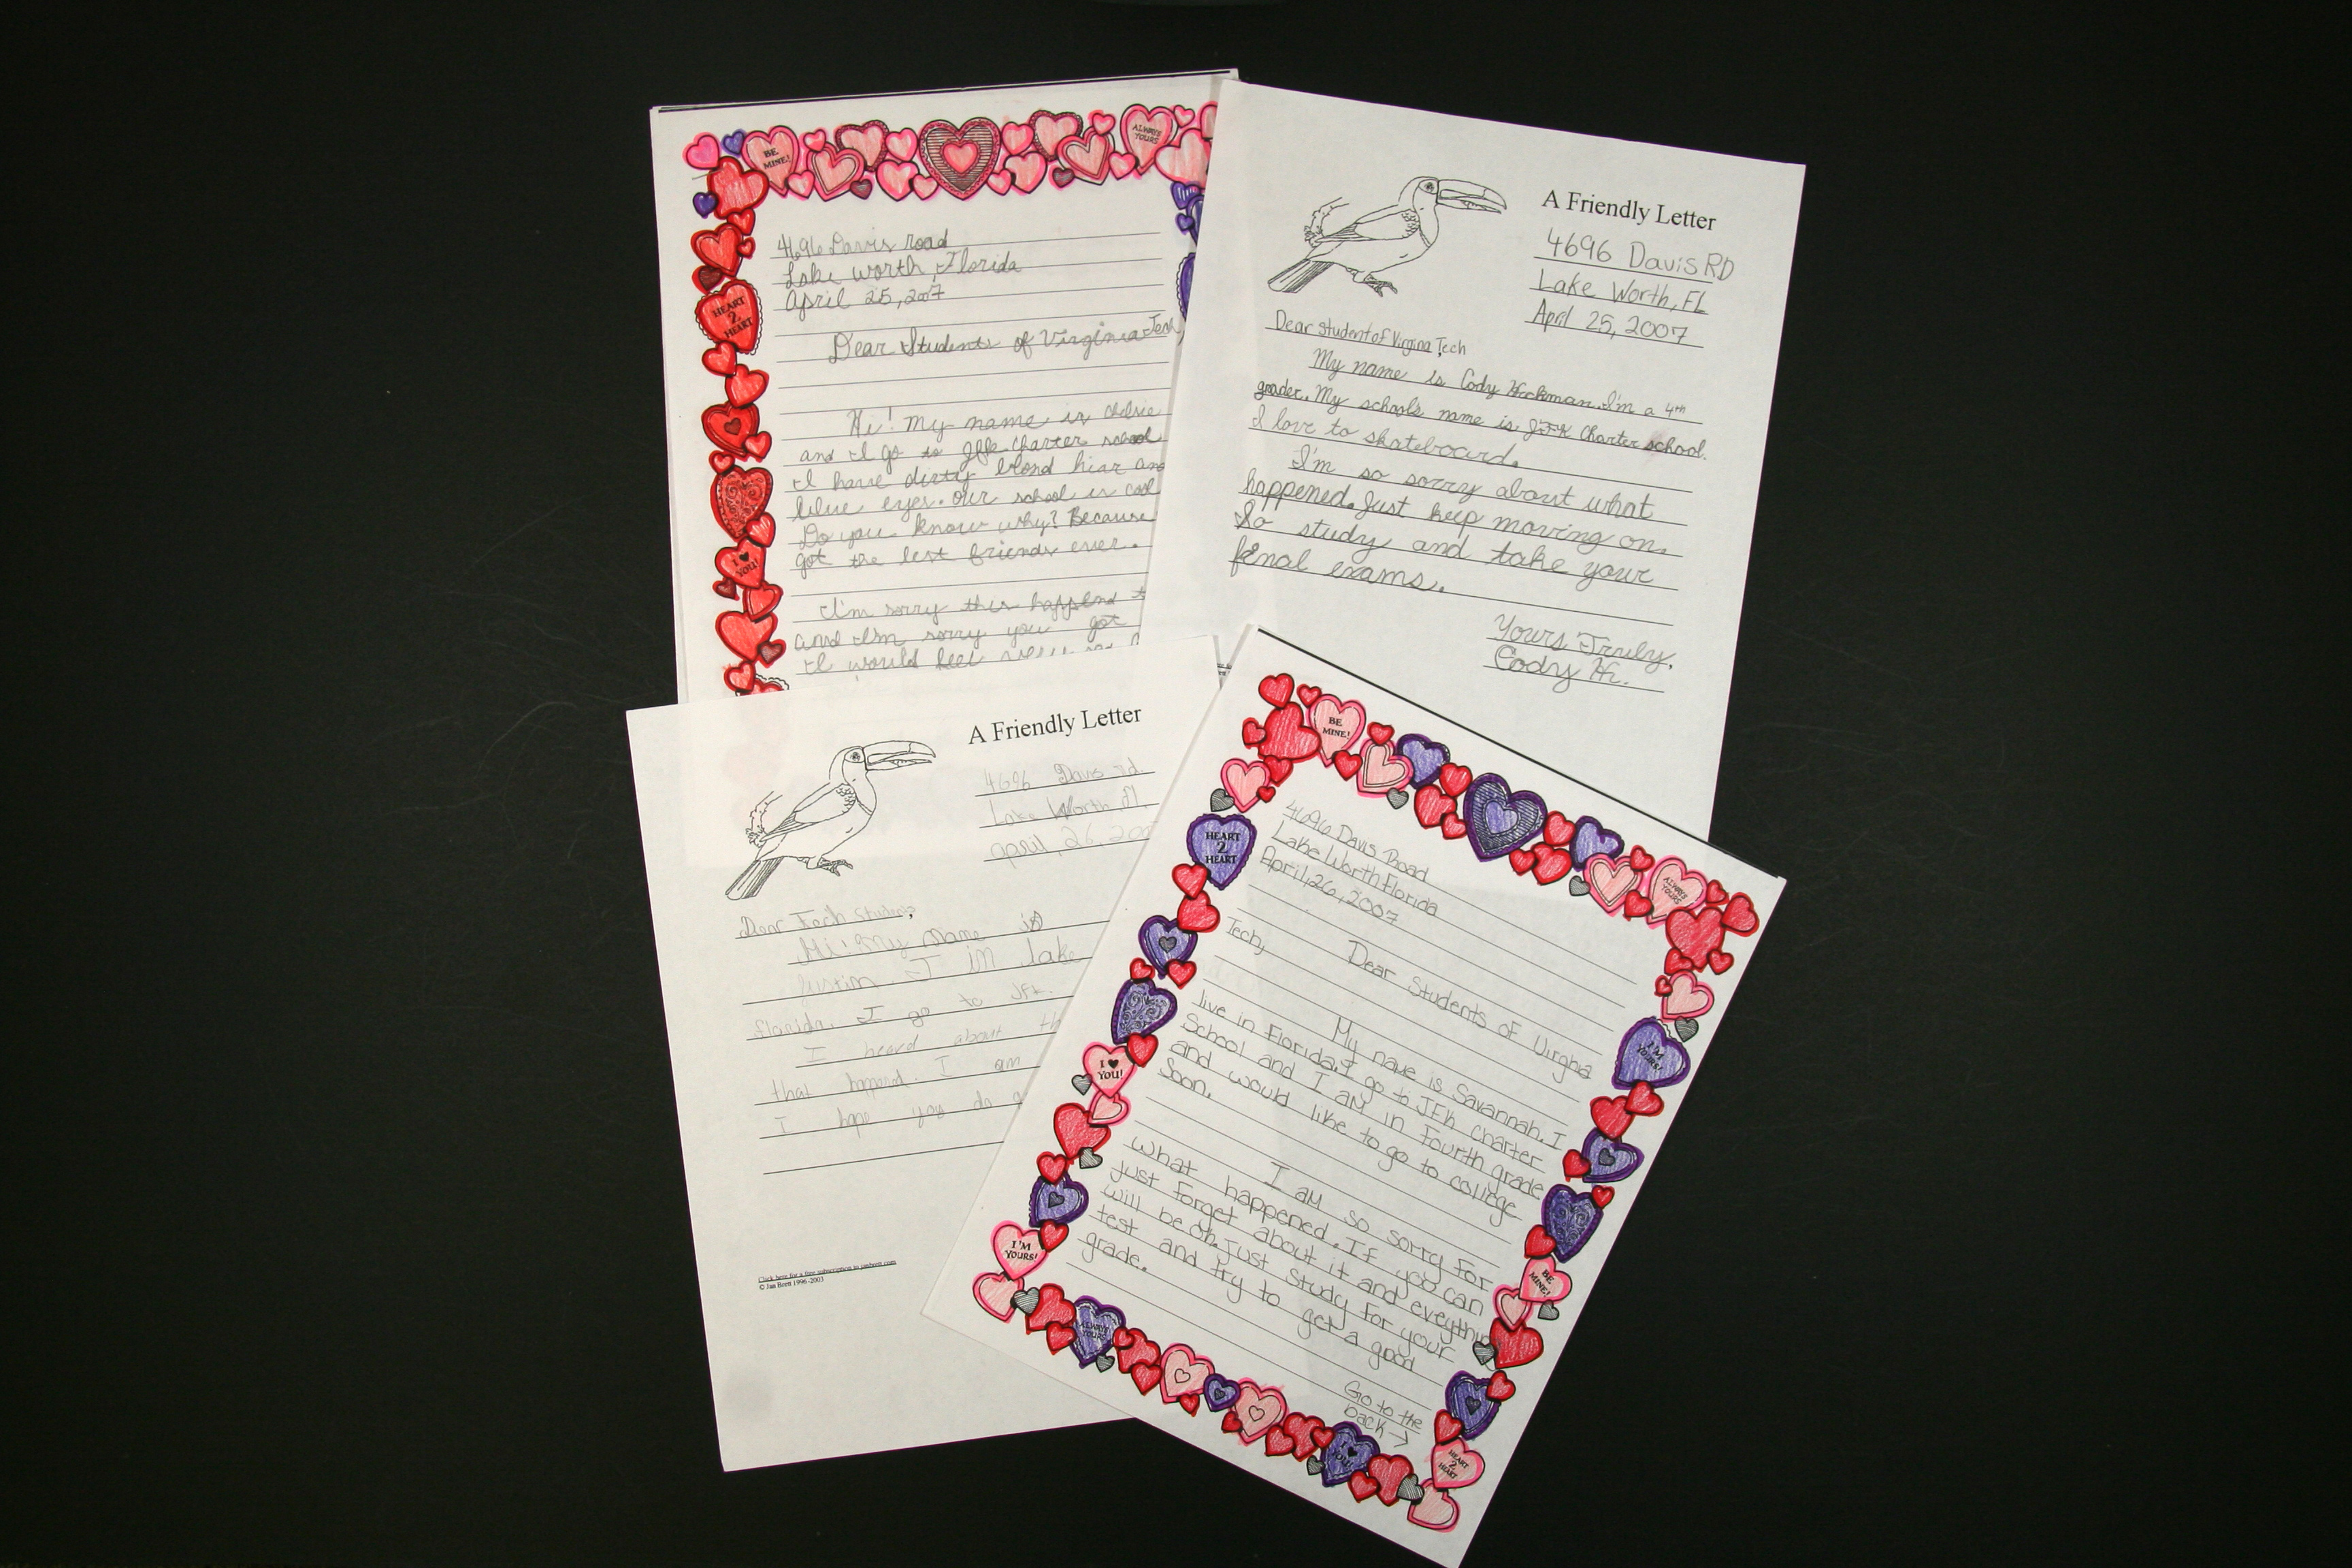 BE MINE!
ALWAYS YOURS
HEART 2 HEART
I ♥ YOU!
4696 Davis road
Lake worth, Florida
April 25, 2007
Dear Students of Virginia Tech
Hi! My name is chlsie
and I go to jfk charter school
I have dirty blond hiar and
blue eyes. Our school is cool
Do you know why? Because
got the best friends ever.
I'm sorry this happend t
and I'm sorry you got
I would feel
A Friendly Letter
4696 Davis RD
Lake Worth, FL
April 25, 2007
Dear student of Virgina Tech
My name is Cody Hickman. I'm a 4th
grader. My school's name is JFK Charter school.
I love to skateboard.
I'm so sorry about what
happened. Just keep moving on.
So study and take your
final exams.
Yours Truly,
Cody H.
A Friendly Letter
4696 Davis rd
Lake Worth fl
april, 26, 200
Dear Tech Students,
Hi! My name is
Justin. I in lake
florida. I go to JFK.
I heard about th
that happend. I am
I hope you do g
Click here for a free subscription to janbrett.com
© Jan Brett 1996-2003
BE MINE!
ALWAYS YOURS
HEART 2 HEART
I'M YOURS!
I ♥ YOU!
I'M YOURS!
BE MINE!
ALWAYS YOURS
I ♥ YOU!
HEART 2 HEART
4696 Davis Road
Lake Worth Florida
April, 26, 2007
Dear Students of Virgnia
Tech,
My name is Savannah. I
live in Florida. I go to JFK charter
School and I am in fourth grade
and would like to go to college
Soon.
I am so sorry for
what happened. If you can
just forget about it and eveything
will be oh. Just study for your
test and try to get a good
grade.
Go to the
back →